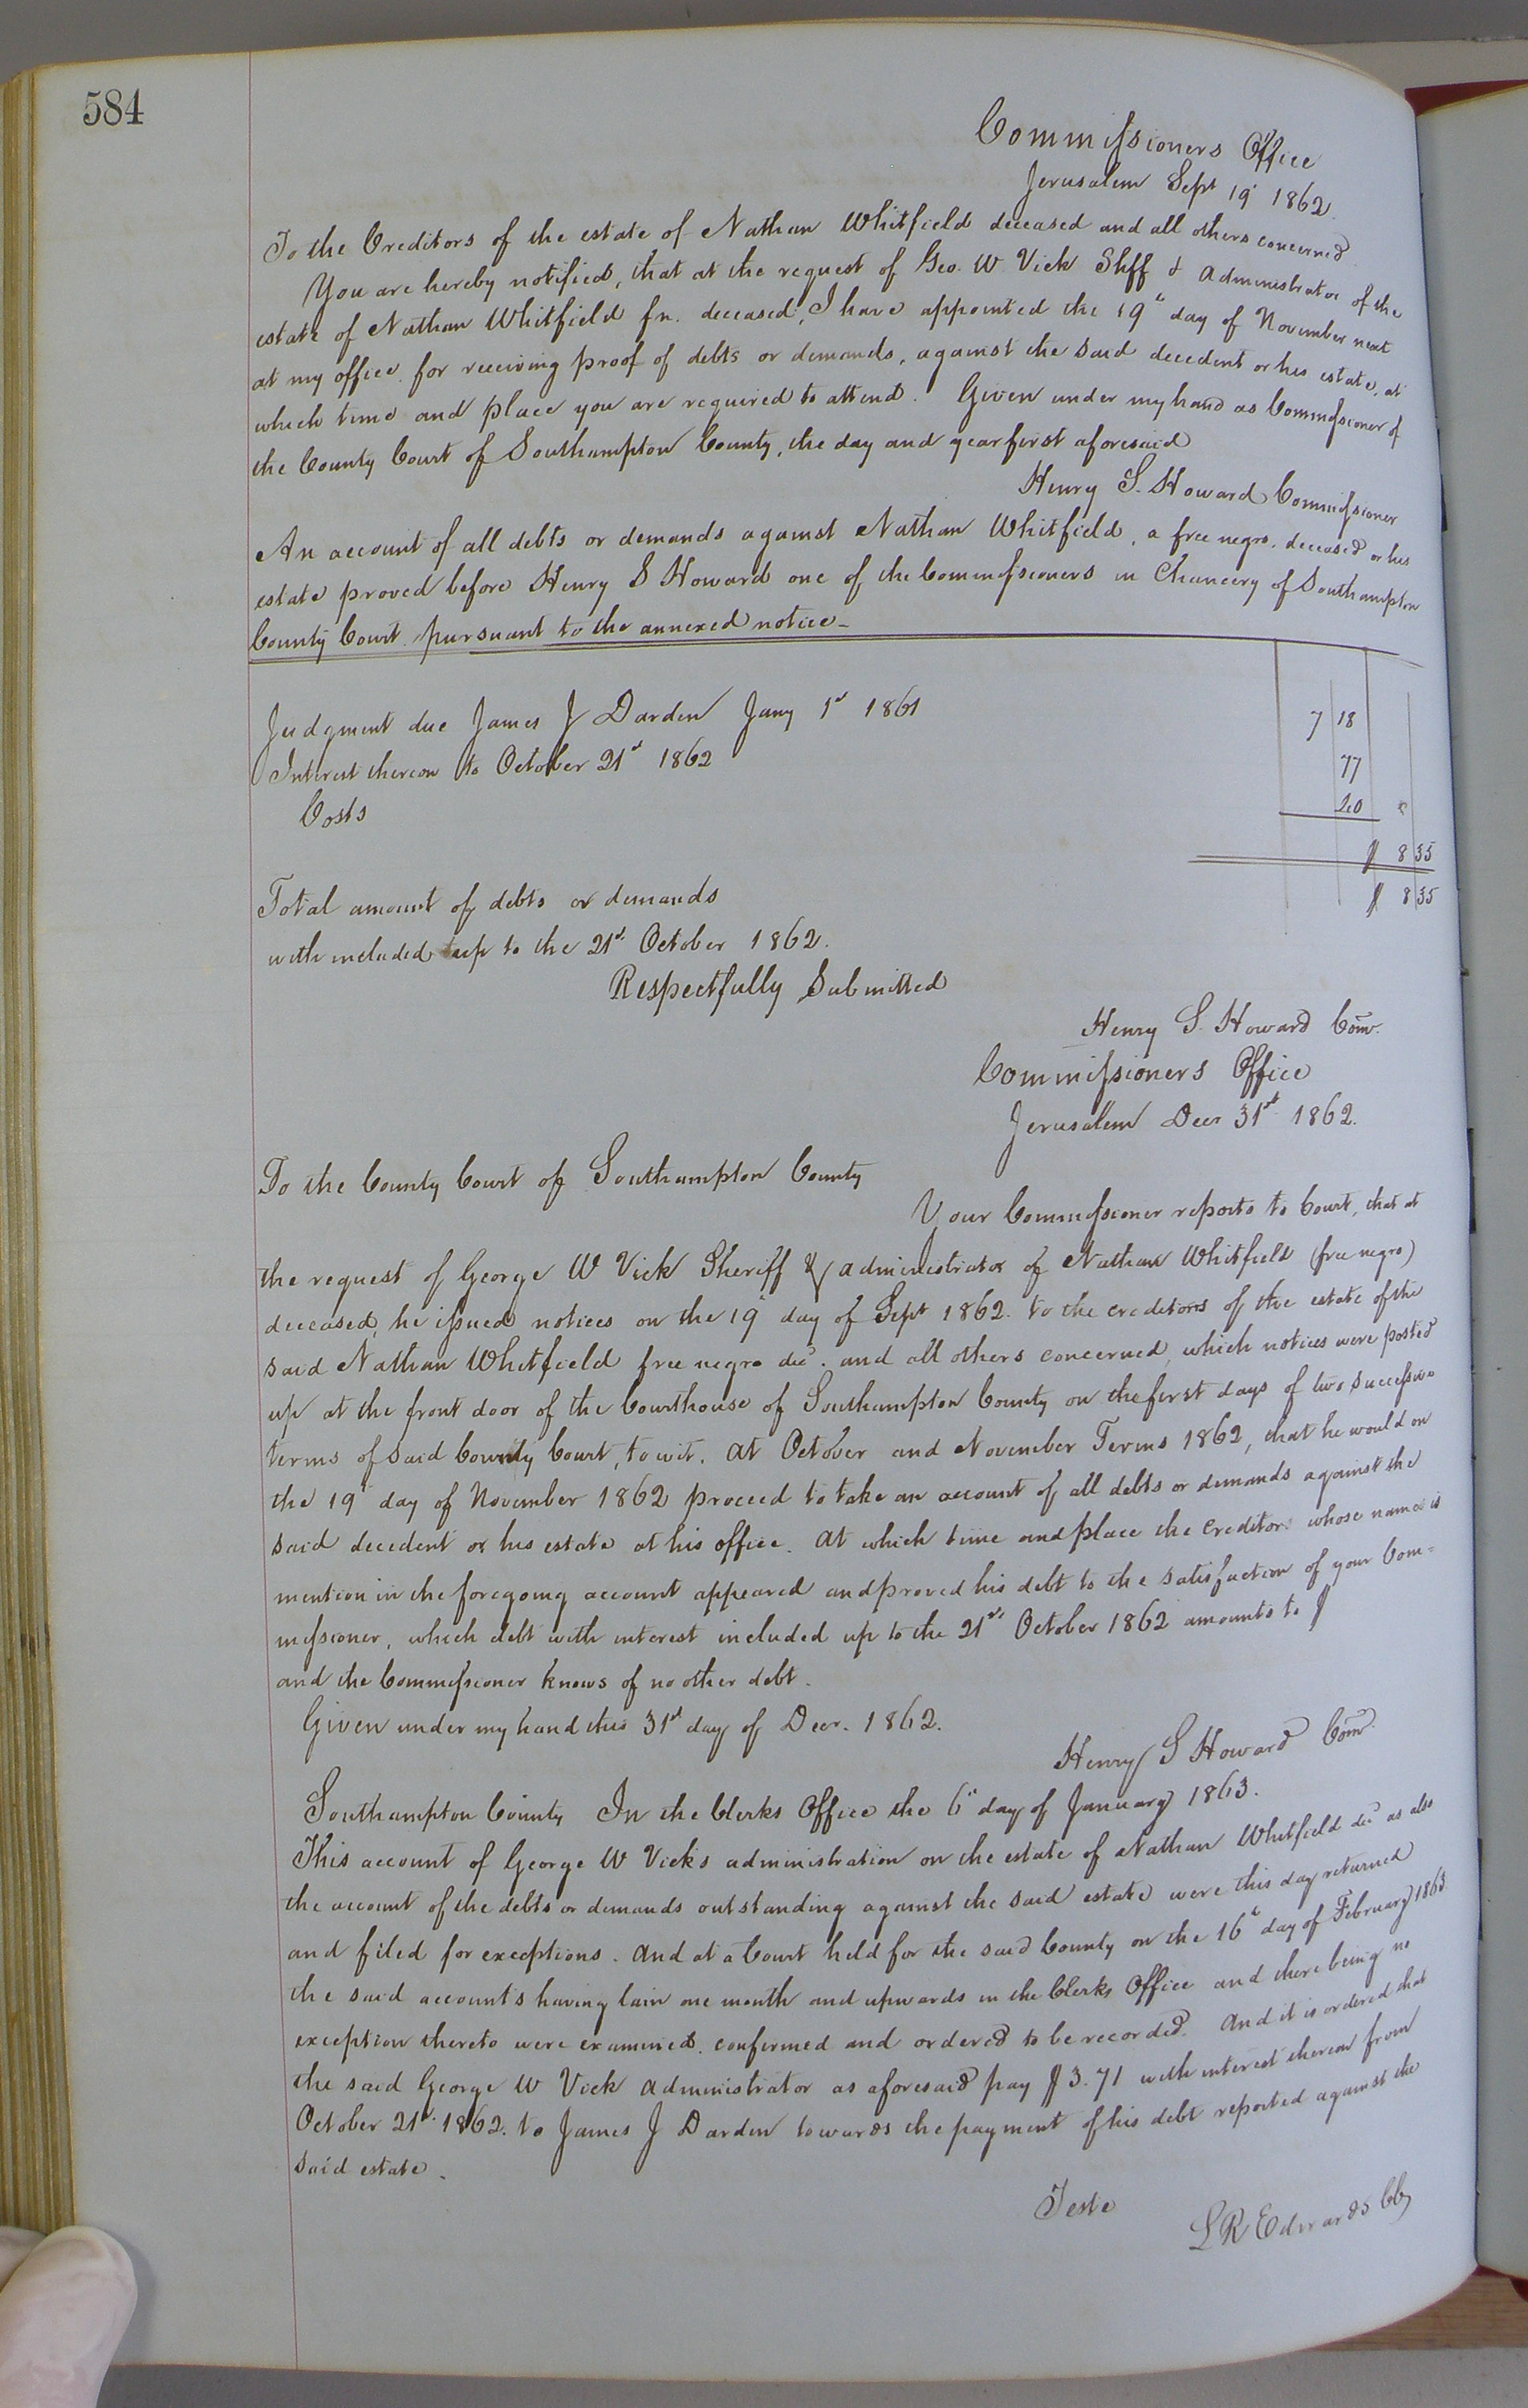 584
Commissioners Office
Jerusalem Sept 19th 1862
To the Creditors of the estate of Nathan Whitfield deceased and all others concerned
You are hereby notified, that at the request of Geo. W. Vick Shff & Administrator of the
estate of Nathan Whitfield fn. deceased, I have appointed the 19th day of November next
at my office for receiving proof of debts or demands, against the said decedent or his estate, at
which time and place you are required to attend. Given under my hand as Commissioner of
the County Court of Southampton County, the day and year first aforesaid
Henry S. Howard Commissioner
An account of all debts or demands against Nathan Whitfield, a free negro, deceased or his
estate proved before Henry S Howard one of the Commissioners in Chancery of Southampton
County Court pursuant to the annexed notice -
Judgment due James J Darden Jany 1st 1861 7 18
Interest thereon to October 21st 1862 77
Costs 20
$ 8 35
Total amount of debts or demands $ 8 35
with included up to the 21st October 1862.
Respectfully Submitted
Henry S. Howard Comr.
Commissioners Office
Jerusalem Decr 31st 1862.
To the County Court of Southampton County
Your Commissioner reports to Court, that at
the request of George W Vick Sheriff & administrator of Nathan Whitfield (free negro)
deceased, he issued notices on the 19th day of Sept 1862. to the creditors of the estate of the
said Nathan Whitfield free negro decd. and all others concerned, which notices were posted
up at the front door of the Courthouse of Southampton County on the first days of two successive
terms of said County Court, to wit. At October and November Terms 1862, that he would on
the 19th day of November 1862 proceed to take an account of all debts or demands against the
said decedent or his estate at his office. At which time and place the creditors whose name is
mention in the foregoing account appeared and proved his debt to the satisfaction of your Com=
missioner, which debt with interest included up to the 21st October 1862 amounts to $
and the Commissioner knows of no other debt.
Given under my hand this 31st day of Decr. 1862.
Henry S Howard Comr.
Southampton County In the Clerks Office the 6th day of January 1863.
This account of George W Vick's administration on the estate of Nathan Whitfield decd as also
the account of the debts or demands outstanding against the said estate were this day returned
and filed for exceptions. And at a Court held for the said County on the 16th day of February 1863
the said accounts having lain one month and upwards in the Clerks Office and there being no
exception thereto were examined, confirmed and ordered to be recorded. And it is ordered that
the said George W Vick Administrator as aforesaid pay $3.71 with interest thereon from
October 21st 1862. to James J Darden towards the payment of his debt reported against the
said estate.
Teste
L R Edwards Clk